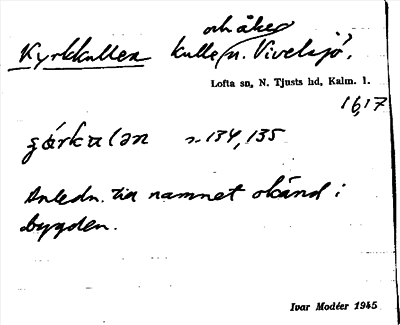 och åker
Kyrkkullen kulle n. Vivelsjö,
Lofta sn, N. Tjusts hd, Kalm. l.
16,17
s. 134, 135
Anledn. till namnet okänd i
bygden.
Ivar Modéer 1945